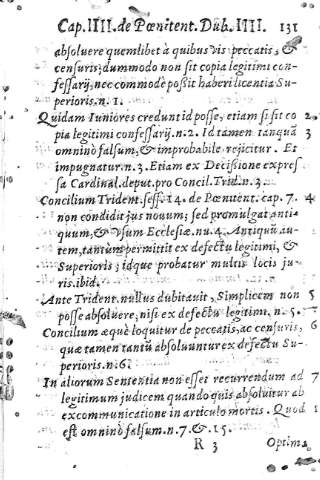 Cap. IIII. de Pœnitent. Dub. IIII. 131
absoluere quemlibet à quibusvis peccatis, &
censuris; dummodo non sit copia legitimi con-
fessarij, nec commodè possit haberi licentia Su-
perioris. n. 1.
Quidam Iuniores credunt id posse, etiam si sit co 2
pia legitimi confessarij. n. 2. Id tamen tanquā 3
omninò falsum, & improbabile reijcitur. Et
impugnatur. n. 3. Etiam ex Decisione expres
sa Cardinal. deput. pro Concil. Trid. n. 3.
Concilium Trident. sess. 14. de Pœnitent. cap. 7. 4
non condidit jus nouum; sed promulgat anti-
quum, & vsum Ecclesiæ. nu. 4. Antiquū au-
tem, tantùm permittit ex defectu legitimi, &
Superioris; idque probatur multis locis ju-
ris. ibid.
Ante Trident. nullus dubitauit, Simplicem non 5
posse absoluere, nisi ex defectu legitimi. n. 5.
Concilium æquè loquitur de peccatis, ac censuris, 6
quæ tamen tantū absoluuntur ex defectu Su-
perioris. n. 6.
In aliorum Sententia non esset recurrendum ad 7
legitimum judicem quando quis absoluitur ab
excommunicatione in articulo mortis. Quod 1
est omninò falsum. n. 7. & 15.
R 3 Optima